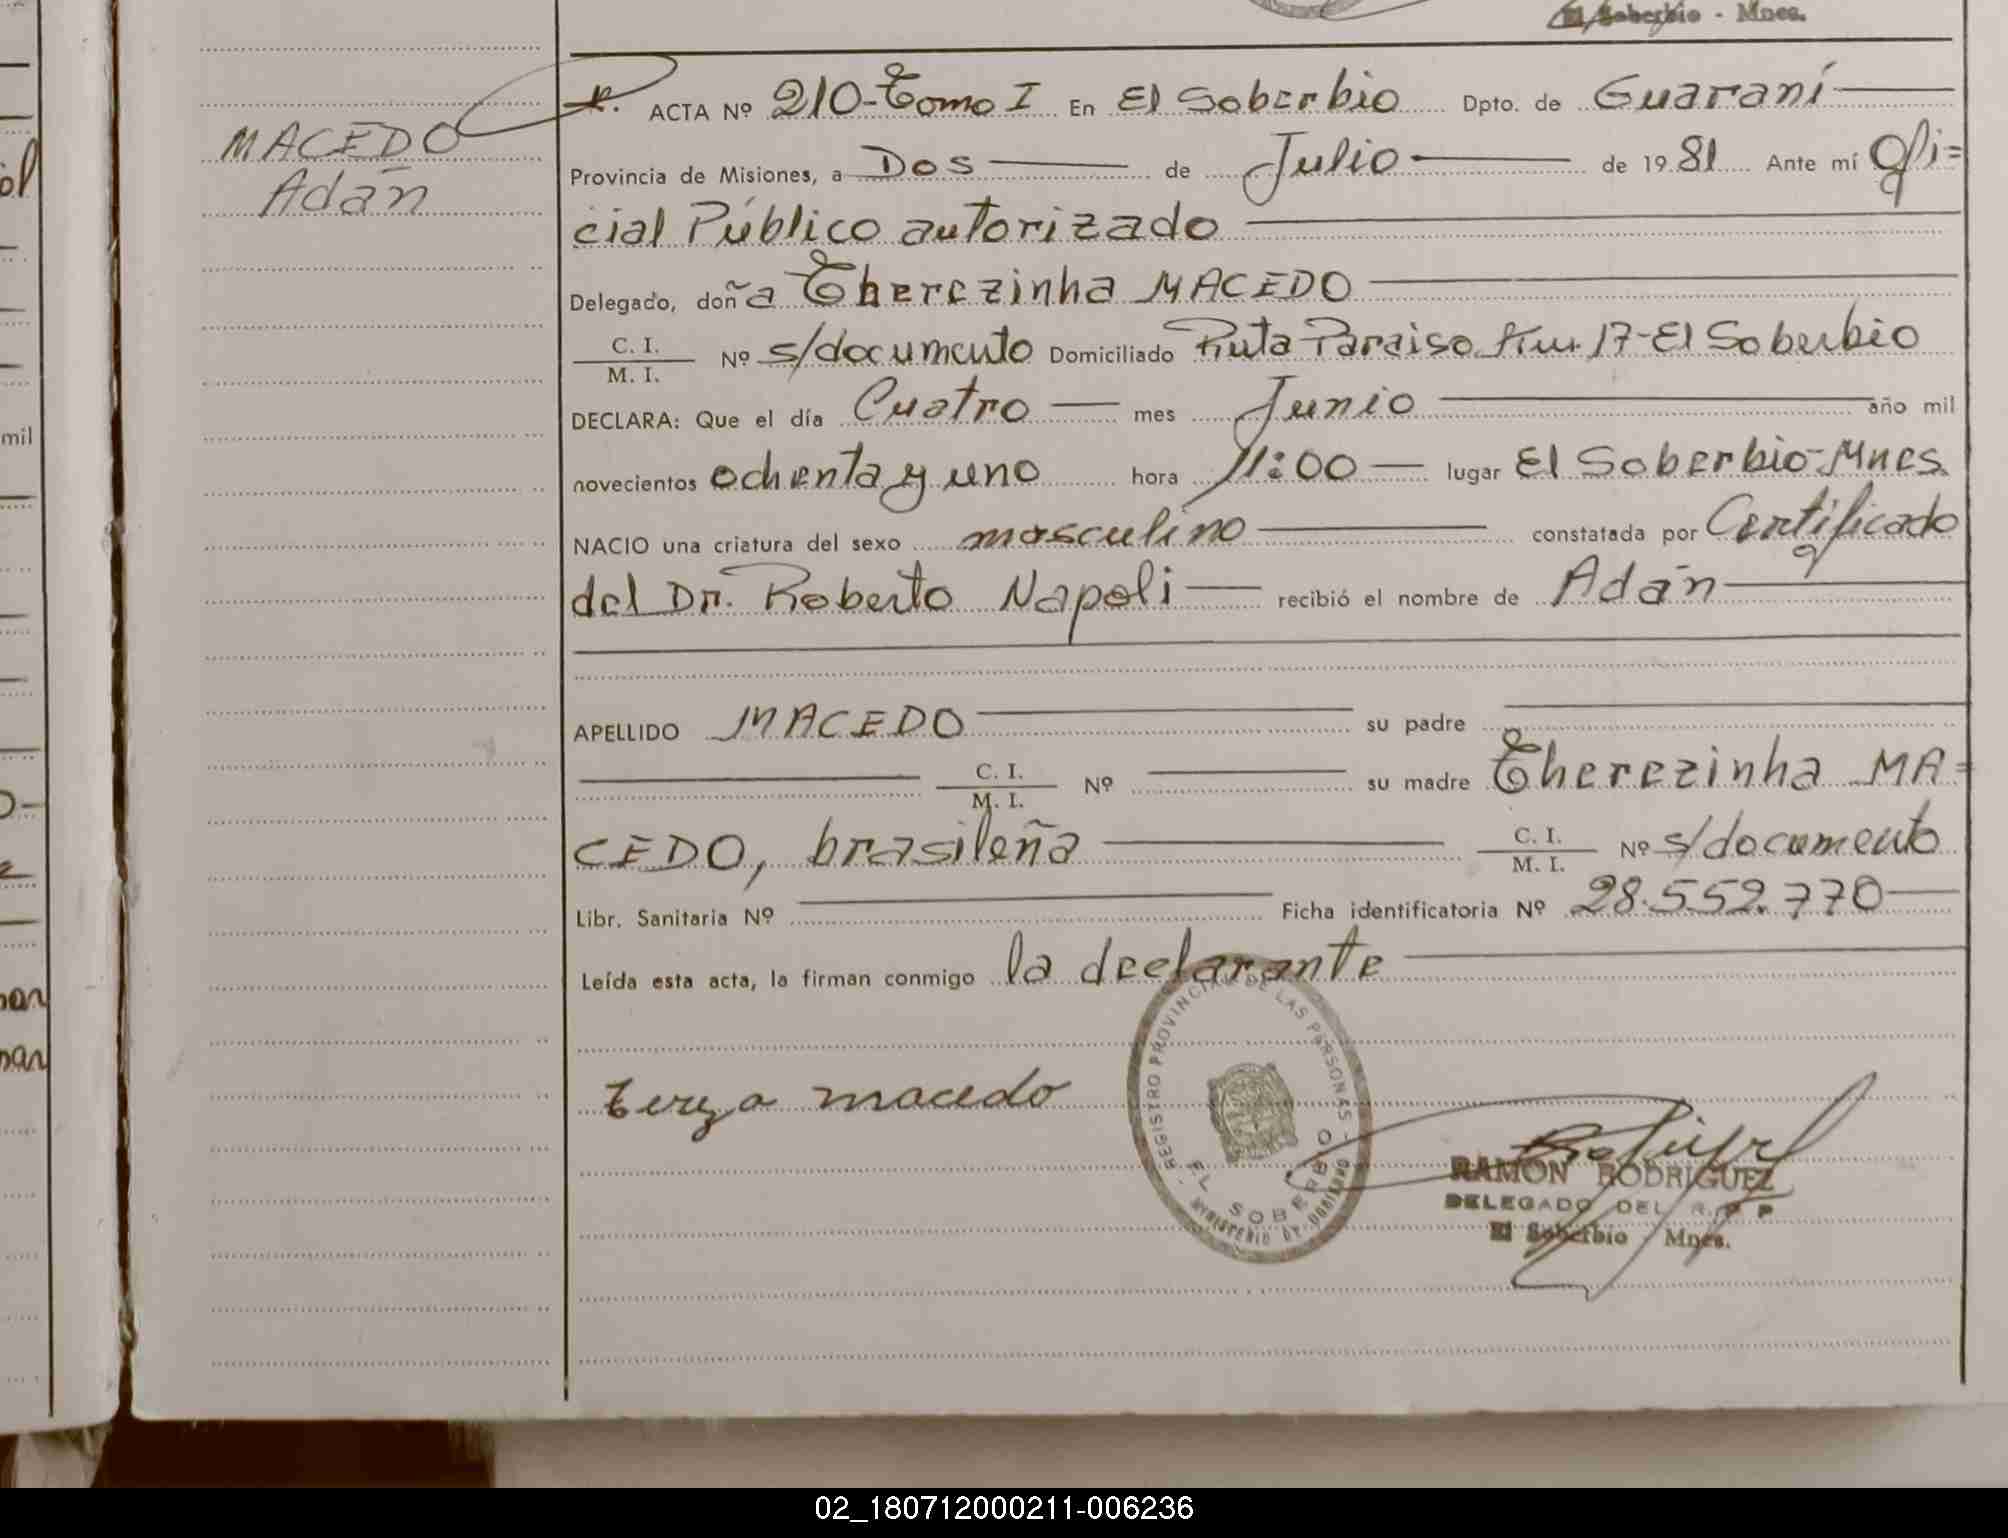 El Soberbio - Mnes.
MACEDO
Adán
ACTA Nº 210-Tomo I En El Soberbio Dpto. de Guaraní
Provincia de Misiones, a Dos de Julio de 1981 Ante mí Ofi=
cial Público autorizado
Delegado, doña Therezinha MACEDO
C. I.
M. I. Nº s/documento Domiciliado Ruta Paraiso Km. 17-El Soberbio
DECLARA: Que el día Cuatro mes Junio año mil
novecientos ochenta y uno hora 11:00 lugar El Soberbio-Mnes.
NACIO una criatura del sexo masculino constatada por Certificado
del Dr. Roberto Napoli recibió el nombre de Adán
APELLIDO MACEDO su padre
C. I.
M. I. Nº su madre Therezinha MA=
CEDO, brasileña C. I.
M. I. Nº s/documento
Libr. Sanitaria Nº Ficha identificatoria Nº 28.552.770
Leída esta acta, la firman conmigo la declarante
REGISTRO PROVINCIAL DE LAS PERSONAS
EL SOBERBIO
MINISTERIO DE GOBIERNO
tereza macedo
RAMON RODRIGUEZ
DELEGADO DEL R. P. P.
El Soberbio - Mnes.
mil
02_180712000211-006236